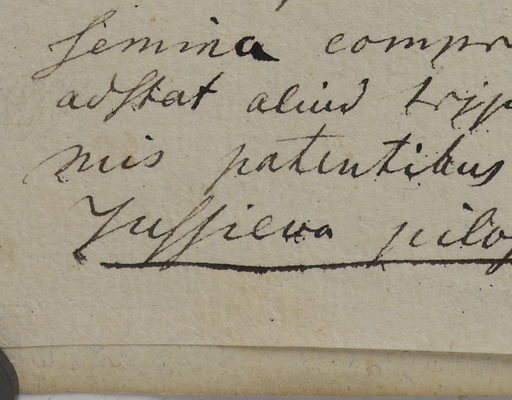 semina compr
adstat aliud tripp
mis patentibus
Jussieua pilo